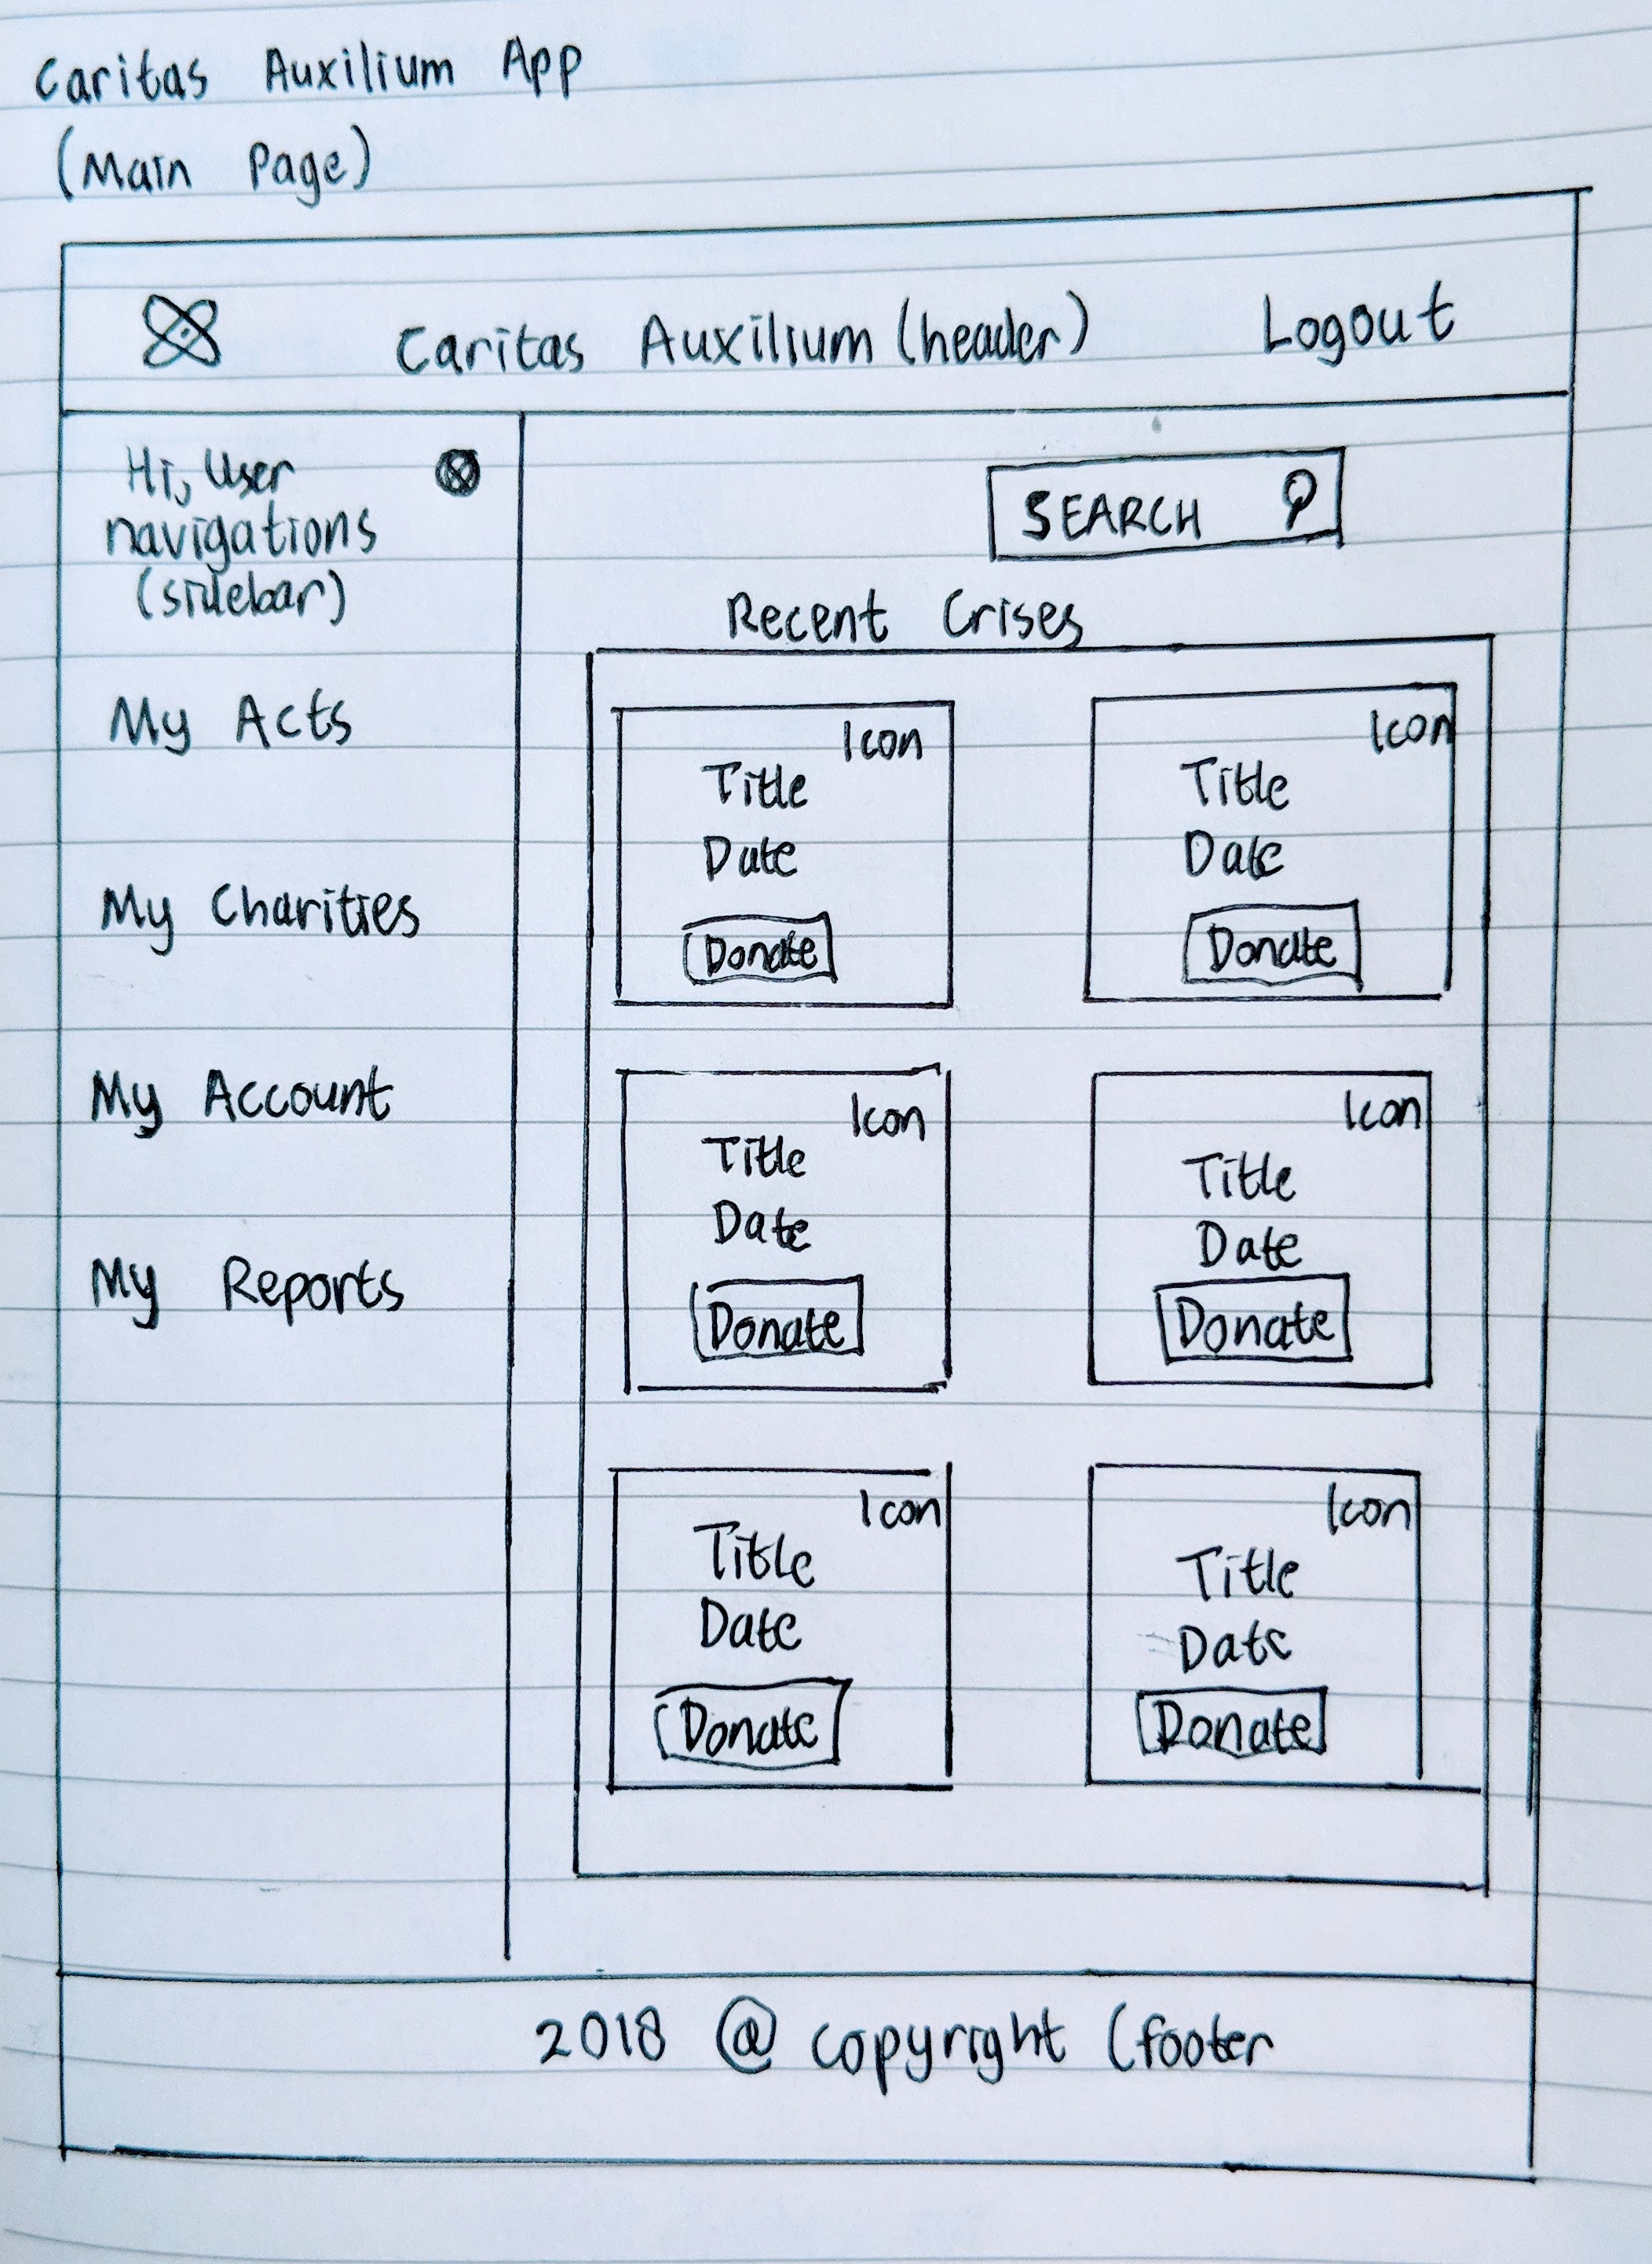 Caritas Auxilium App
(Main Page)
Caritas Auxilium (header)
Logout
Hi, User
navigations
(sidebar)
My Acts
My Charities
My Account
My Reports
SEARCH
Recent Crises
Icon
Title
Date
Donate
Icon
Title
Date
Donate
Icon
Title
Date
Donate
Icon
Title
Date
Donate
Icon
Title
Date
Donate
Icon
Title
Date
Donate
2018 @ copyright (footer